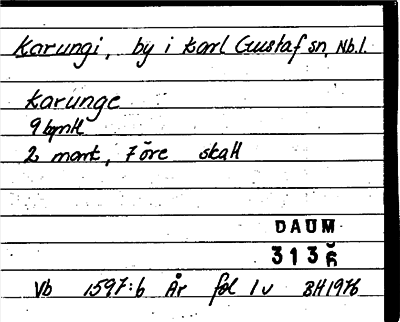 Karungi, by i Karl Gustaf sn, Nb.l.
Karunge
9 bymtl
2 mant, 7 öre skatt
DAUM
3136
Vb 1597:6 År fol 1v BH1976